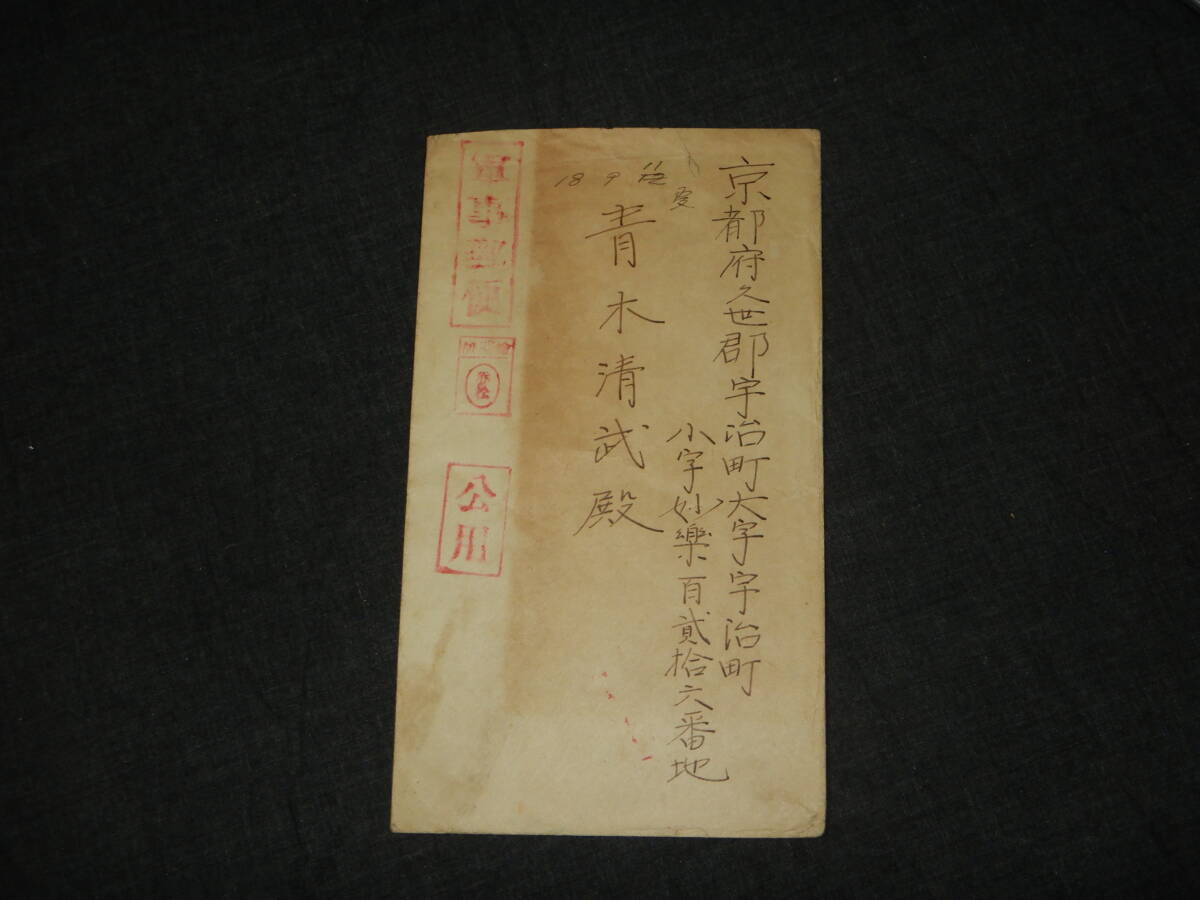 京都府久世郡宇治町大字宇治町
小字妙樂百貳拾六番地
受
青木清武殿
18 9
軍事郵便
検閲済
公用